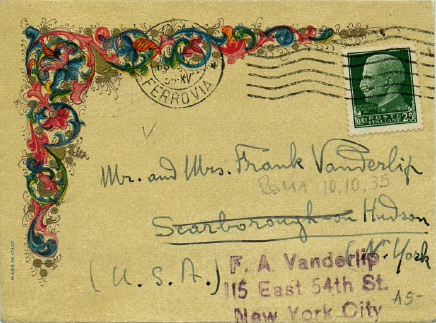 FERROVIA
POSTE
ITALIANE
25
Mr. and Mrs. Frank Vanderlip
ROMA 10.10.35
Scarborough-on Hudson
(N. York
(U.S.A.)
F. A. Vanderlip
115 East 54th St.
New York City
A5-
MADE IN ITALY